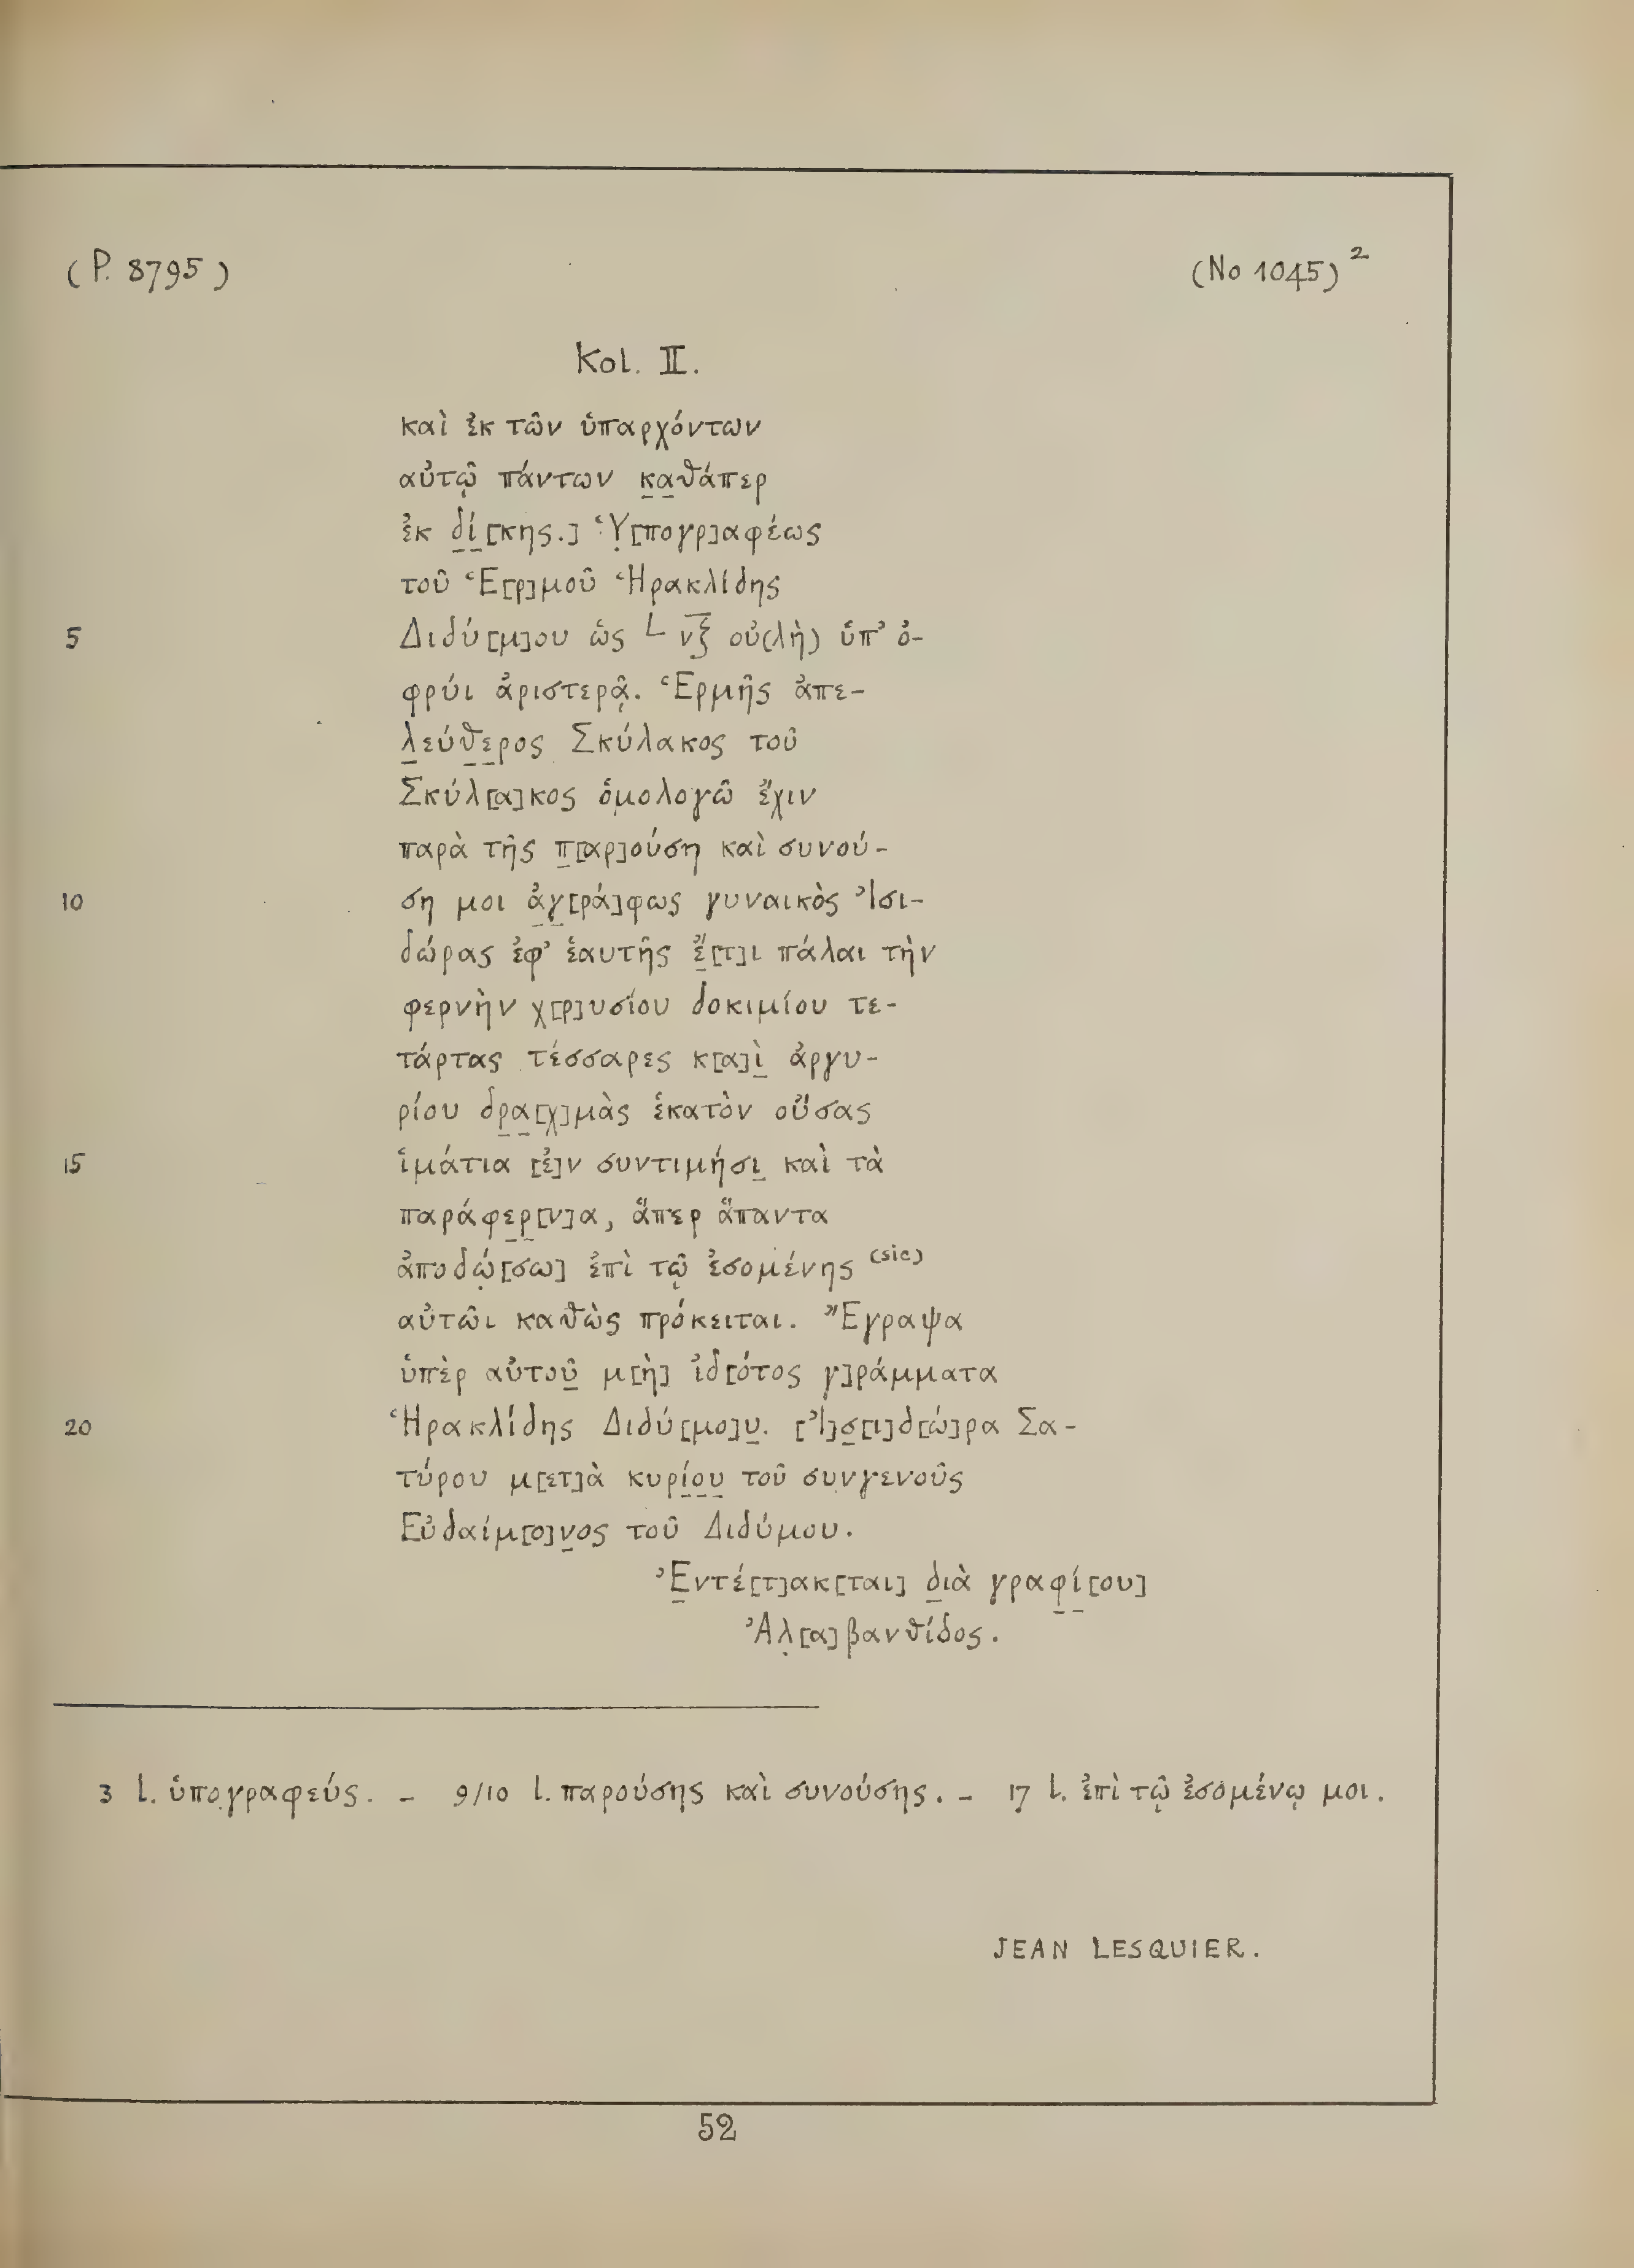 (P. 8795) (No 1045)²
Kol. II.
καὶ ἐκ τῶν ὑπαρχόντων
αὐτῷ πάντων κ̣α̣θάπερ
ἐκ δ̣ί̣[κης.] Ὑ̣[πογρ]αφέως
τοῦ Ἑ[ρ]μοῦ Ἡρακλίδης
5 Διδύ[μ]ου ὡς L ν̅ξ̅ οὐ(λὴ) ὑπ’ ὀ-
φρύι ἀριστερᾷ. Ἑρμῆς ἀπε-
λ̣εύθ̣ε̣ρος Σκύλακος τοῦ
Σκύλ[α]κος ὁμολογῶ ἔχιν
παρὰ τῆς π̣[αρ]ούση καὶ συνού-
10 ση μοι ἀ̣γ̣[ρά]φως γυναικὸς Ἰσι-
δώρας ἐφ’ ἑαυτῆς ἔ̣[τ]ι πάλαι τὴν
φερνὴν χ[ρ]υσίου δοκιμίου τε-
τάρτας τέσσαρες κ[α]ὶ̣ ἀργυ-
ρίου δρ̣α̣[χ]μὰς ἑκατὸν οὔσας
15 ἱμάτια [ἐ]ν συντιμήσι̣ καὶ τὰ
παράφε̣ρ̣[ν]α, ἅπερ ἅπαντα
ἀποδώ̣[σω] ἐπὶ τῷ ἐσομένης (sic)
αὐτῶι καθὼς πρόκειται. Ἔγραψα
ὑπὲρ αὐτοῦ̣ μ[ὴ] ἰδ[ότος γ]ράμματα
20 Ἡρακλίδης Διδύ[μο]υ̣. [Ἰ]σ̣[ι]δ[ώ]ρα Σα-
τύρου μ[ετ]ὰ κυρί̣ο̣υ̣ τοῦ συνγενοῦς
Εὐδαίμ[ο]ν̣ος τοῦ Διδύμου.
Ἐ̣ντέ[τ]ακ[ται] δ̣ιὰ γραφ̣ί̣[ου]
Ἀλ̣[α]βανθίδος.
3 l. ὑπογραφεύς. – 9/10 l. παρούσης καὶ συνούσης. – 17 l. ἐπὶ τῷ ἐσομένῳ μοι.
JEAN LESQUIER.
52